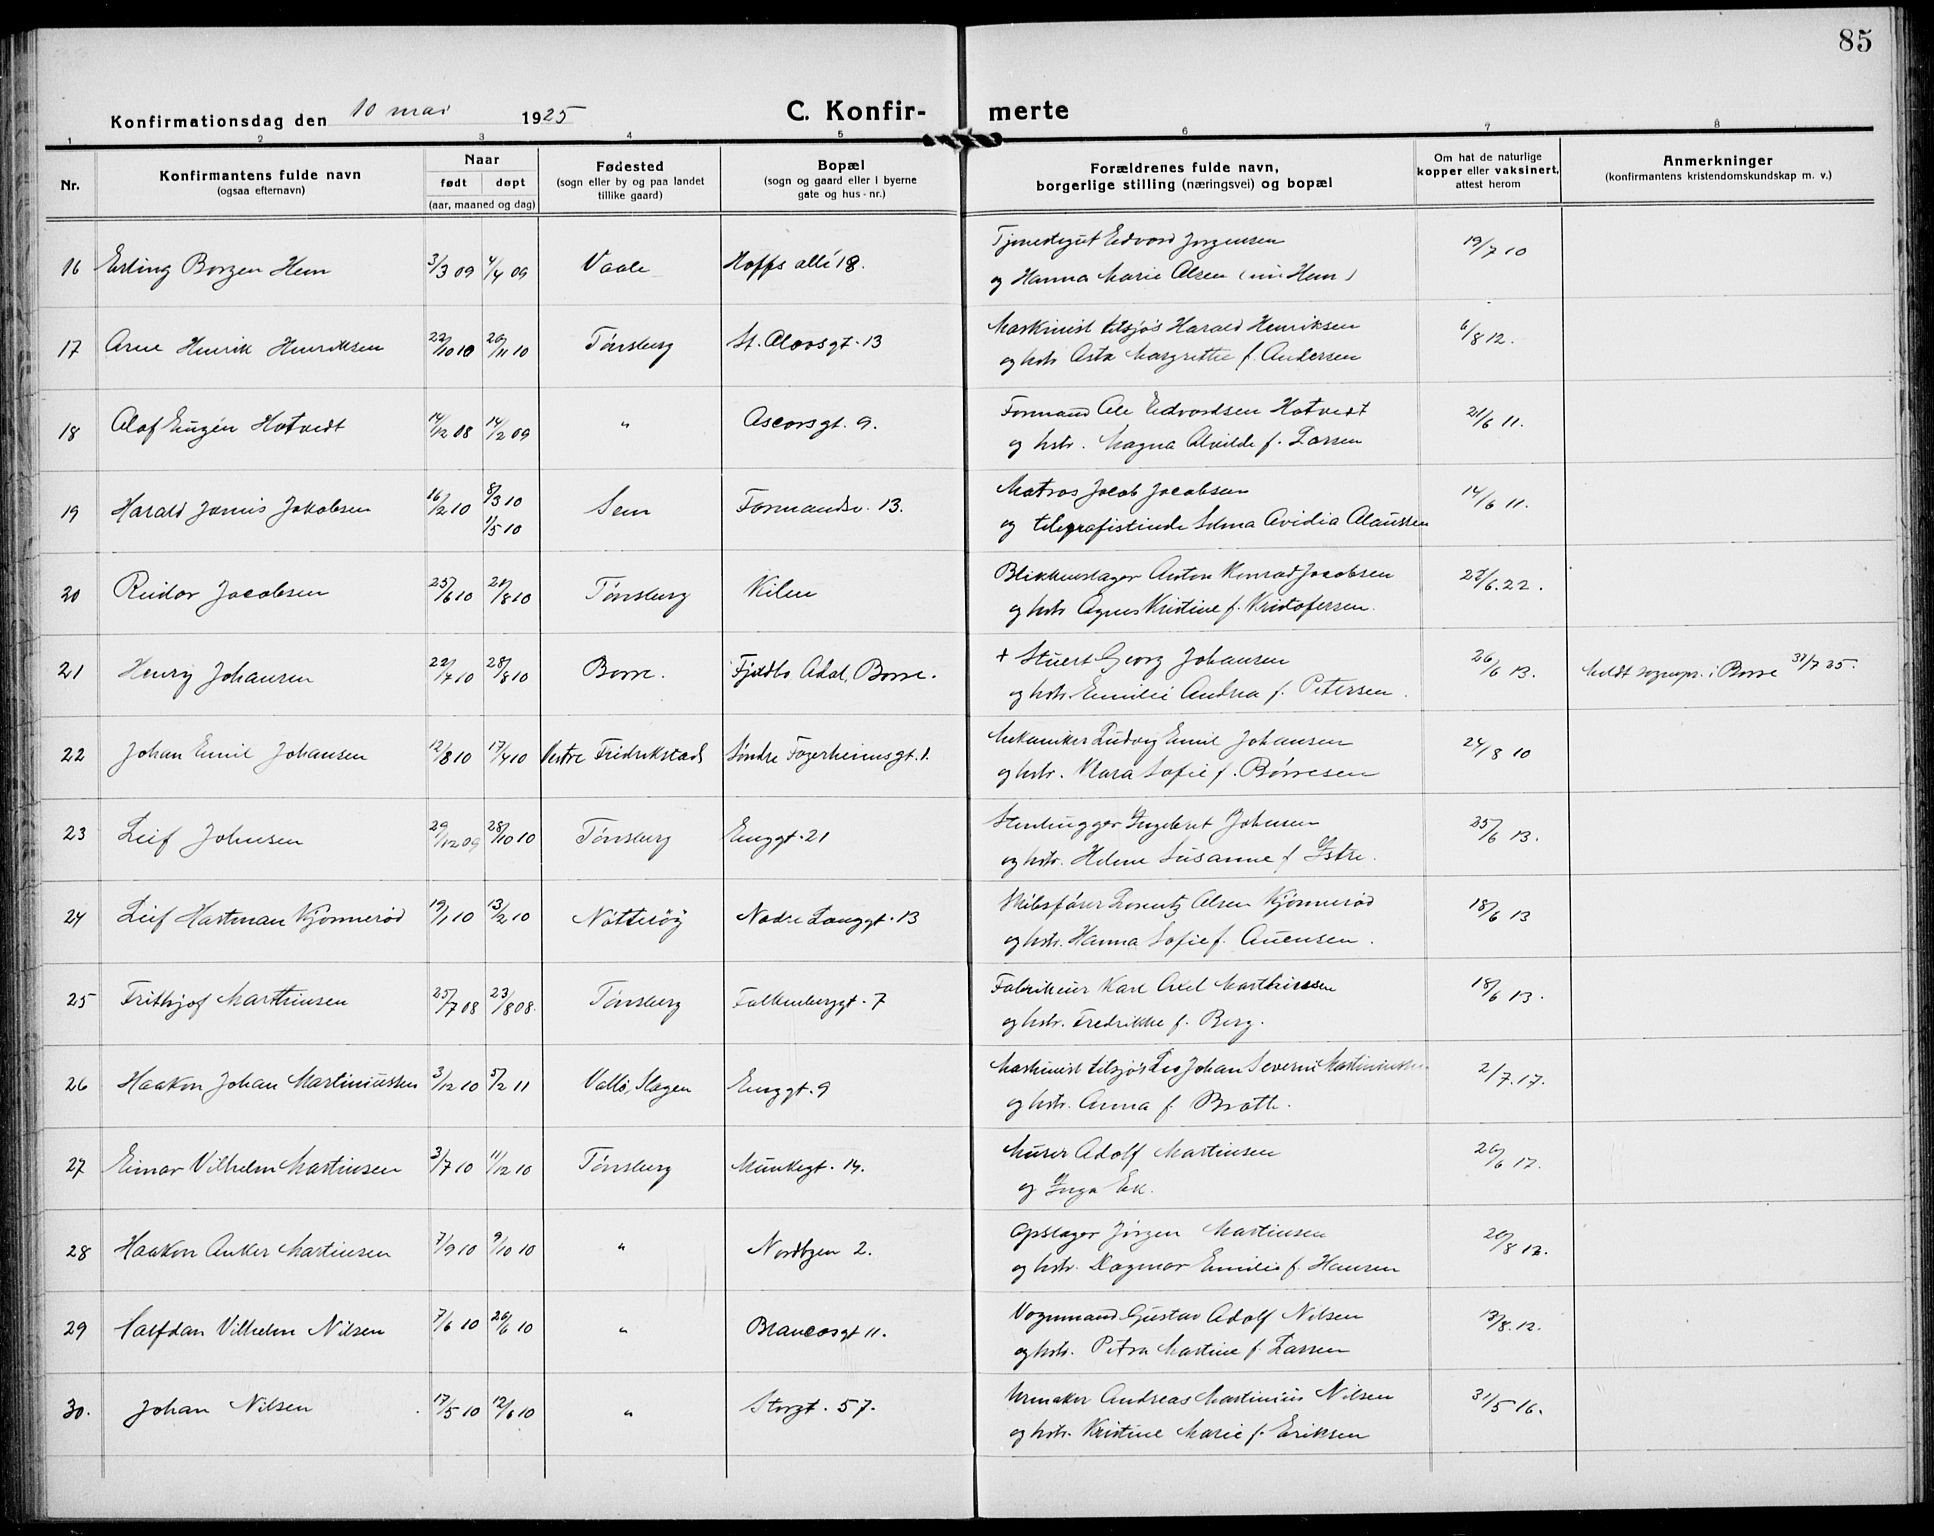 85
Konfirmationsdag den 10 mai 1925 C. Konfir- merte
1 2 3 4 5 6 7 8
Nr. Konfirmantens fulde navn (ogsaa efternavn) Naar født døpt (aar, maaned og dag) Fødested (sogn eller by og paa landet tillike gaard) Bopæl (sogn og gaard eller i byerne gate og hus-nr.) Forældrenes fulde navn, borgerlige stilling (næringsvei) og bopæl Om hat de naturlige kopper eller vaksinert, attest herom Anmerkninger (konfirmantens kristendomskundskap m. v.)
16 Erling Borgen Hem 3/3 09 4/4 09 Vaale Hoffs alle 18. Tjenestegut Edvard Jørgensen 19/7 10
og Hanna Marie Olsen (nu Hem)
17 Arne Henrik Henriksen 22/10 10 20/11 10 Tønsberg St. Olavsgt. 13 Maskinist tilsjøs Harald Henriksen 6/8 12.
og hstr. Asta Margrethe f. Andersen
18 Olaf Eugen Hotvedt 14/12 08 14/2 09 " Ascorsgt. 9. Formand Ole Edvardsen Hotvedt 21/6 11.
og hstr. Magna Alvilde f. Larsen
19 Harald Jakobsen 16/2 10 8/3 10 1/5 10 Sem 13. Matros Jacob Jacobsen 14/6 11.
og telegrafistinde Selma Ovidia Olaussen
20 Reidar Jacobsen 25/6 10 21/8 10 Tønsberg Kilen Blikkenslager Anton Konrad Jacobsen 6.22.
og hstr. Agnes Kristine f. Kristofersen.
21 Henry Johansen 22/7 10 28/8 10 Borre. Fjeldbo Adal, Borre. + Stuert Georg Johansen 26/6 13. Meldt sognepr. i Borre 31/7 25.
og hstr. Emilie Andrea f. Petersen.
22 Johan Emil Johansen 12/8 10 17/4 10 Vestre Fredrikstad Søndre Fagerheimsgt. 1. Mekaniker Ludvig Emil Johansen 24/8 10
og hstr. Klara Sofie f. Børresen
23 Leif Johnsen 29/12 09 28/10 10 Tønsberg Enggt. 21 Stenhugger Ingebret Johnsen 25/6 13.
og hstr. Helene Susanne f. Istre.
24 Leif Hartman Kjønnerød 19/1 10 13/2 10 Nøtterøy Nedre Langgt. 13 Skibsfører Lorentz Olsen Kjønnerød 18/6 13
og hstr. Hanna Sofie f. Auensen.
25 Frithjof Marthinsen 25/7 08 23/8 08. Tønsberg Falkenbergt. 7 Fabrikeier Karl Axel Marthinsen 18/6 13.
og hstr. Fredrikke f. Berg.
26 Haakon Johan Martiniussen 3/12 10 5/2 11 Vallø, Slagen Enggt. 9 Maskinist tilsjøs Johan Severin 2/7.17.
og hstr. Anna f. Brath.
27 Einar Vilhelm Martinsen 3/7 10 11/12 10 Tønsberg Munkegt. 14. Murer Adolf Martinsen 26/6 17.
og Inga Ek.
28 Haakon Anker Martinsen 7/9 10 9/10 10 " Nordbyen 2. Opslager Jørgen Martinsen 20/8 12.
og hstr. Dagmar Emilie f. Hansen
29 Halfdan Vilhelm Nilsen 7/6 10 26/6 10 " Brancosgt 11. Vognmand Gustav Adolf Nilsen 13/8.12.
og hstr. Petra Martine f. Larsen
30. Johan Nilsen 17/5 10 12/6 10 " Storgt. 57. Urmaker Andreas Martinius Nilsen 31/5 16.
og hstr. Kristine Marie f. Eriksen